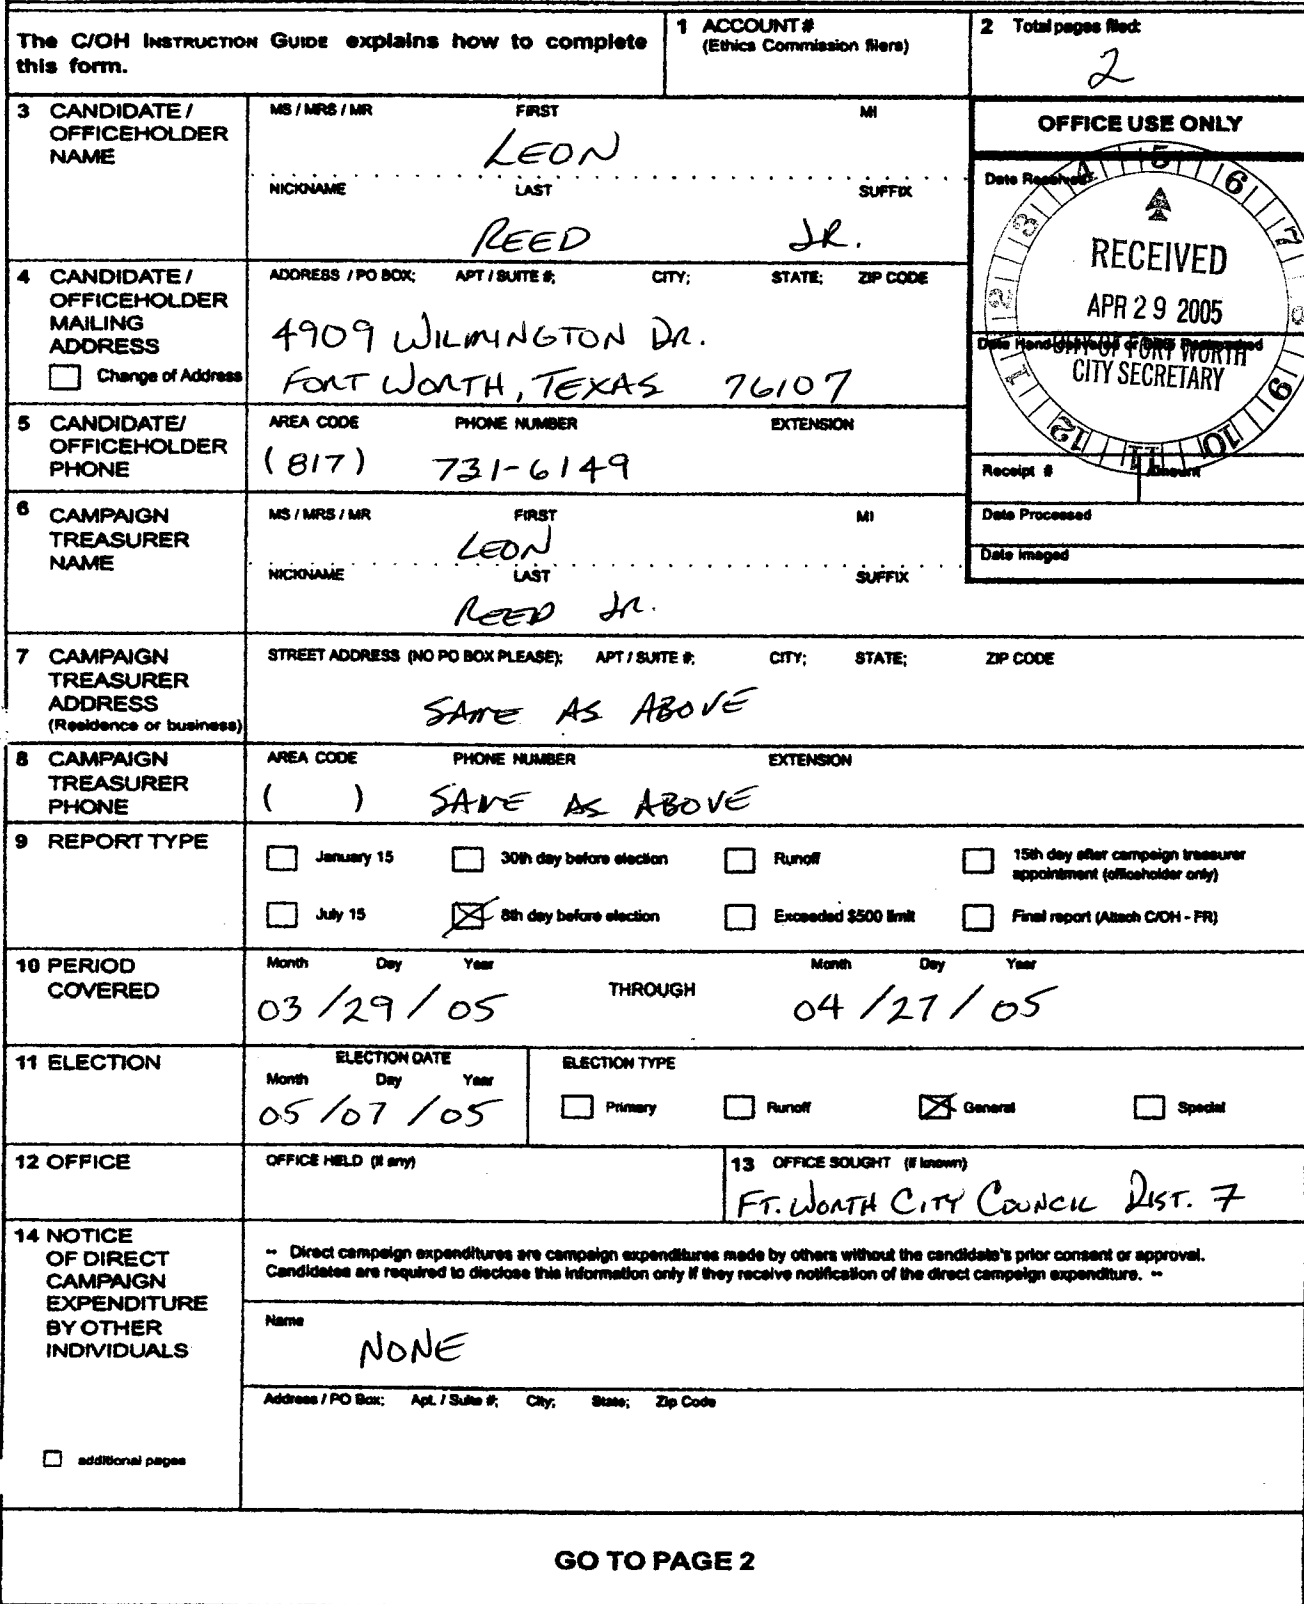 The C/OH INSTRUCTION GUIDE explains how to complete this form.
1 ACCOUNT #
(Ethics Commission filers)
2 Total pages filed:
2
3 CANDIDATE / OFFICEHOLDER NAME
MS / MRS / MR FIRST MI
LEON
NICKNAME LAST SUFFIX
REED JR.
OFFICE USE ONLY
Date Received
RECEIVED
APR 29 2005
CITY OF FORT WORTH
CITY SECRETARY
Date Hand-delivered or Date Postmarked
Receipt # Amount
Date Processed
Date Imaged
1 2 3 4 5 6 7 8 9 10 11 12
4 CANDIDATE / OFFICEHOLDER MAILING ADDRESS
Change of Address
ADDRESS / PO BOX; APT / SUITE #; CITY; STATE; ZIP CODE
4909 WILMINGTON DR.
FORT WORTH, TEXAS 76107
5 CANDIDATE/ OFFICEHOLDER PHONE
AREA CODE PHONE NUMBER EXTENSION
(817) 731-6149
6 CAMPAIGN TREASURER NAME
MS / MRS / MR FIRST MI
LEON
NICKNAME LAST SUFFIX
REED JR.
7 CAMPAIGN TREASURER ADDRESS
(Residence or business)
STREET ADDRESS (NO PO BOX PLEASE); APT / SUITE #; CITY; STATE; ZIP CODE
SAME AS ABOVE
8 CAMPAIGN TREASURER PHONE
AREA CODE PHONE NUMBER EXTENSION
( ) SAME AS ABOVE
9 REPORT TYPE
January 15 30th day before election Runoff 15th day after campaign treasurer appointment (officeholder only)
July 15 8th day before election Exceeded $500 limit Final report (Attach C/OH - FR)
10 PERIOD COVERED
Month Day Year Month Day Year
03 / 29 / 05 THROUGH 04 / 27 / 05
11 ELECTION
ELECTION DATE
Month Day Year
05 / 07 / 05
ELECTION TYPE
Primary Runoff General Special
12 OFFICE
OFFICE HELD (if any)
13 OFFICE SOUGHT (if known)
FT. WORTH CITY COUNCIL DIST. 7
14 NOTICE OF DIRECT CAMPAIGN EXPENDITURE BY OTHER INDIVIDUALS
additional pages
-- Direct campaign expenditures are campaign expenditures made by others without the candidate's prior consent or approval.
Candidates are required to disclose this information only if they receive notification of the direct campaign expenditure. --
Name
NONE
Address / PO Box; Apt. / Suite #; City; State; Zip Code
GO TO PAGE 2